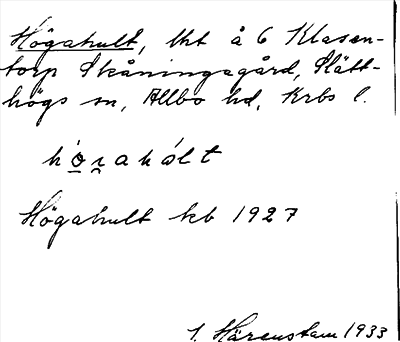 Högahult, lht å 6 Klasen-
torp Skåningsgård, Slätt-
högs sn, Allbo hd, Krbs l.
ho̲ɀahólt
Högahult kb 1927
I. Härenstam 1933